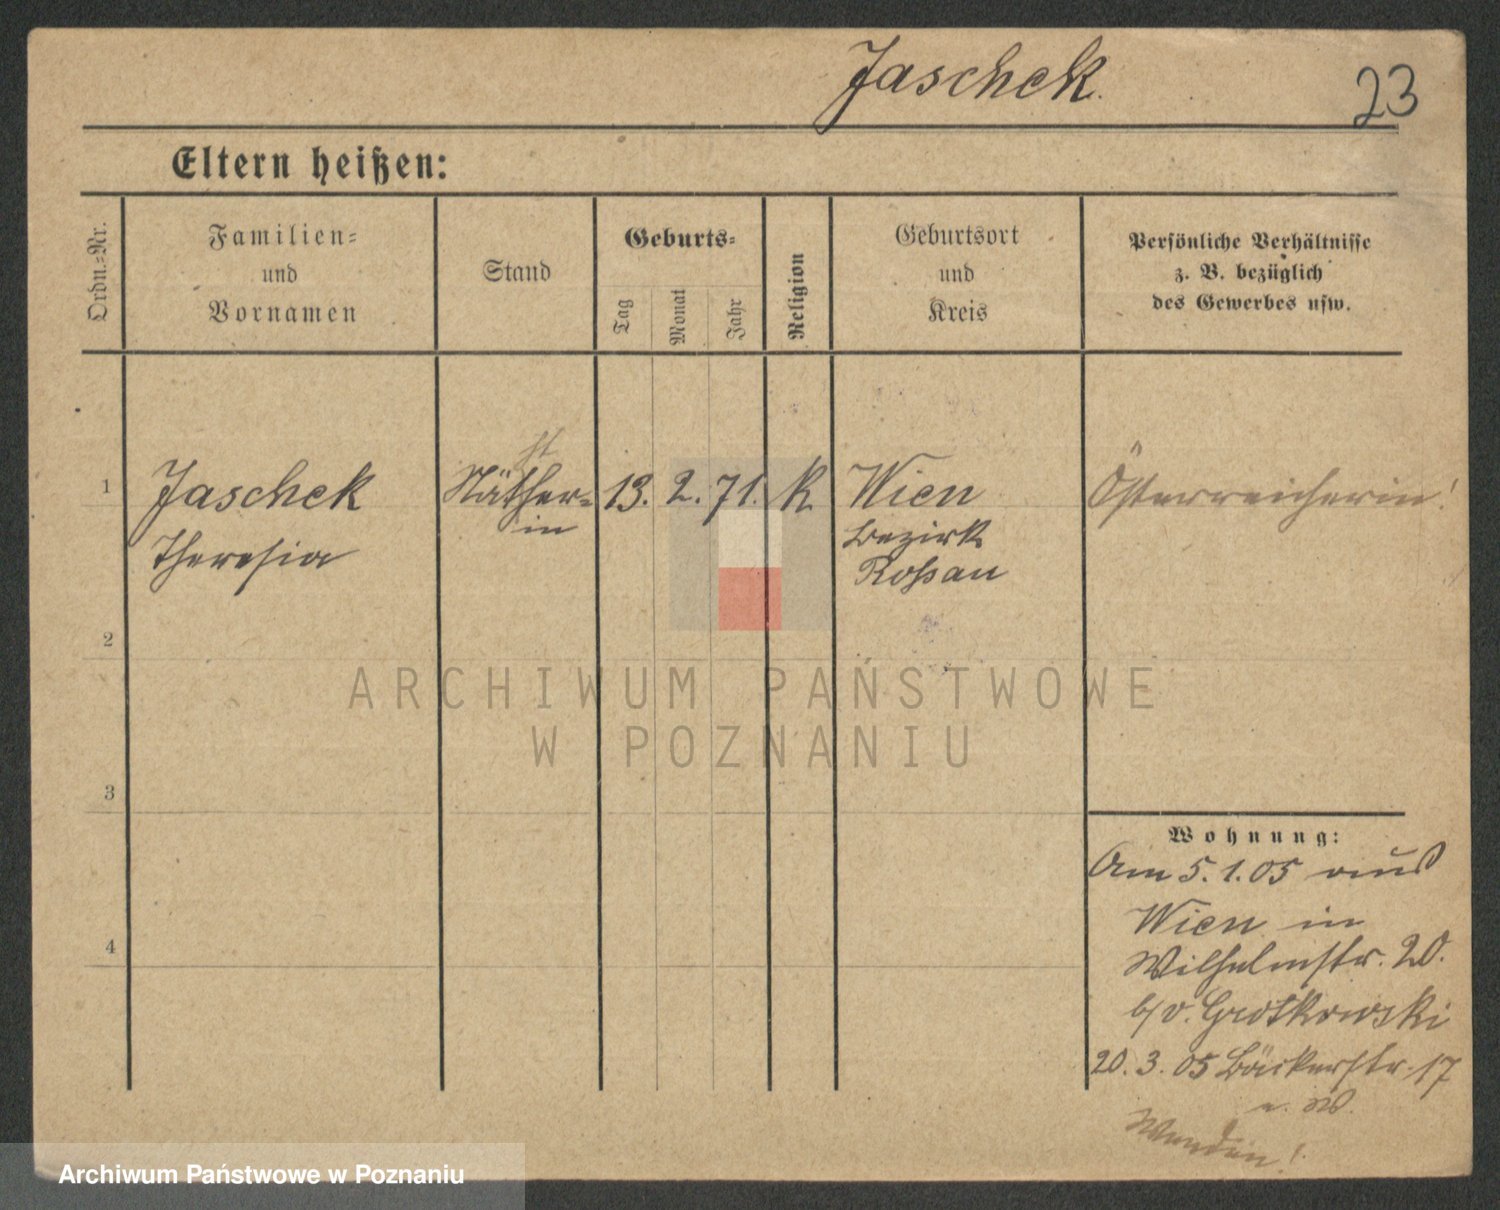 Jaschek.
23
Eltern heißen:
Ordn.=Nr.
Familien=
und
Vornamen
Stand
Geburts=
Tag
Monat
Jahr
Religion
Geburtsort
und
Kreis
Persönliche Verhältnisse
z. B. bezüglich
des Gewerbes usw.
1
Jaschek
Theresia
Näther=
in
13. 2. 71. K.
Wien
Bezirk
Roßau
Österreicherin!
2
ARCHIWUM PAŃSTWOWE
W POZNANIU
3
Wohnung:
Am 5. 1. 05 aus
Wien in
Wilhelmstr. 20.
b/v. Grotkowski
4
20. 3. 05 Bäckerstr. 17
Wenden!
Archiwum Państwowe w Poznaniu